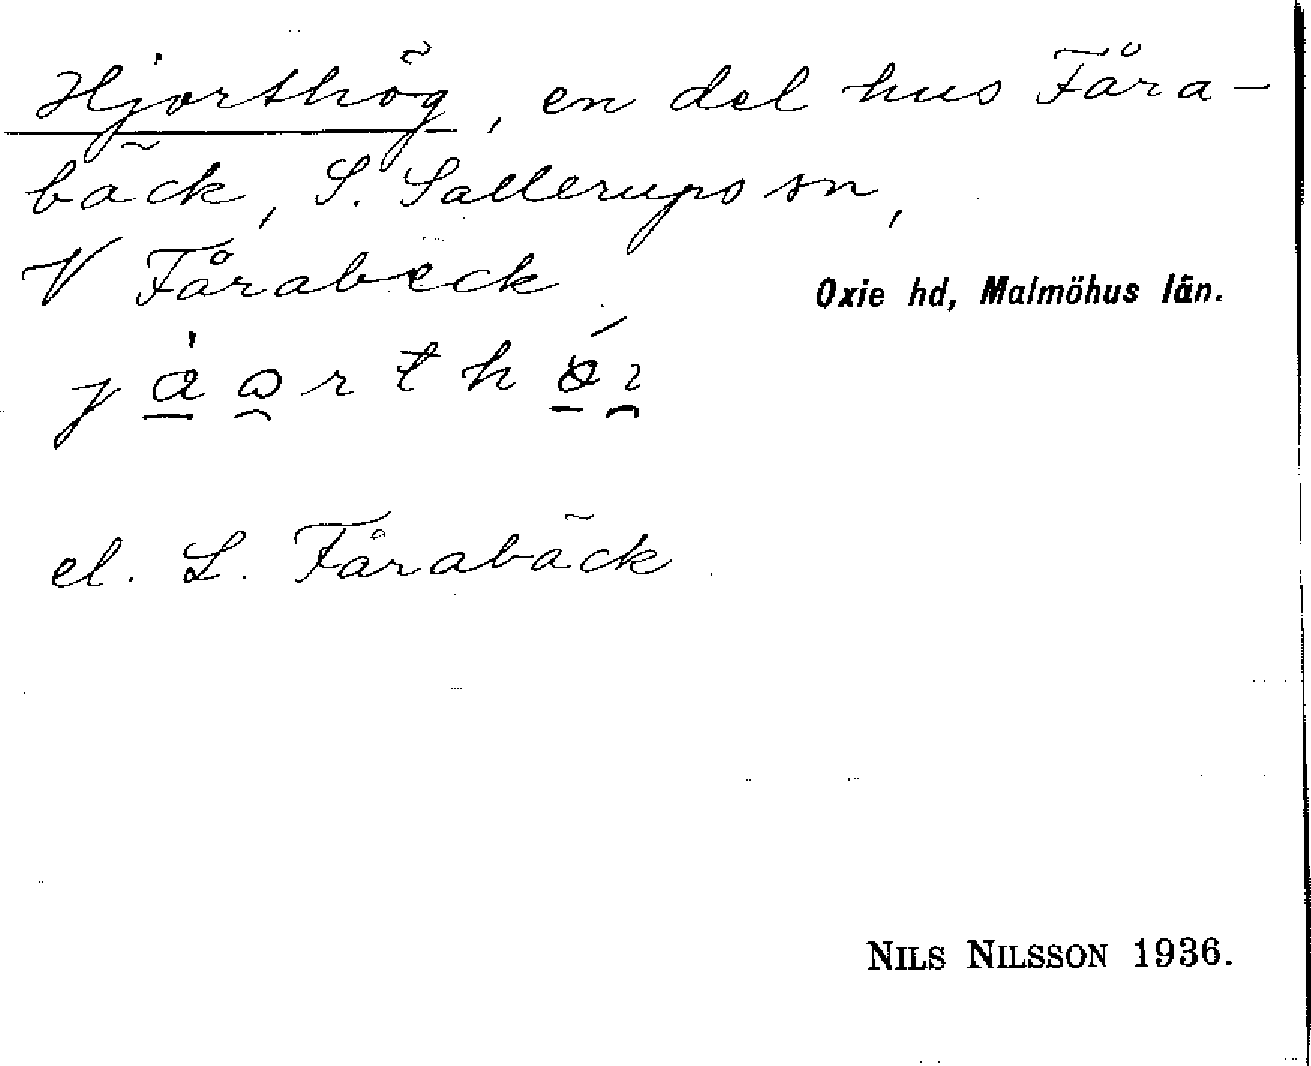 Hjorthög, en del hus Fåra-
bäck, S. Sallerups sn,
V Fårabäck
Oxie hd, Malmöhus län.
el. L. Fårabäck
NILS NILSSON 1936.